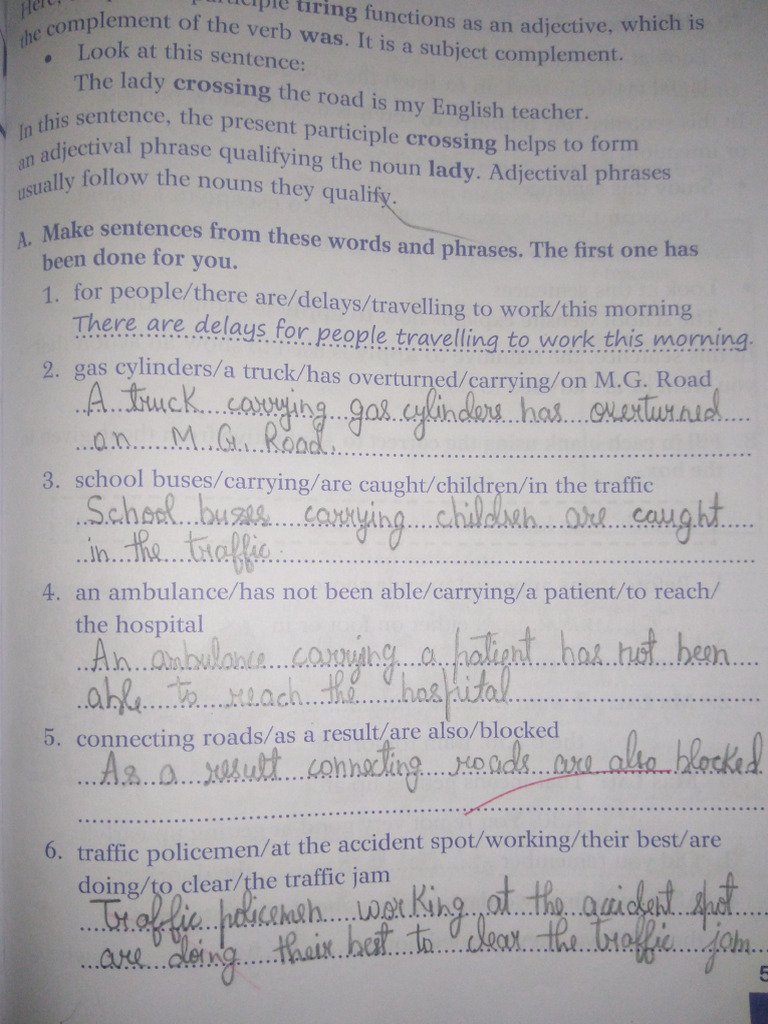 participle tiring functions as an adjective, which is
the complement of the verb was. It is a subject complement.
• Look at this sentence:
The lady crossing the road is my English teacher.
In this sentence, the present participle crossing helps to form
an adjectival phrase qualifying the noun lady. Adjectival phrases
usually follow the nouns they qualify.
A. Make sentences from these words and phrases. The first one has
been done for you.
1. for people/there are/delays/travelling to work/this morning
There are delays for people travelling to work this morning.
2. gas cylinders/a truck/has overturned/carrying/on M.G. Road
A truck carrying gas cylinders has overturned
on M.G. Road.
3. school buses/carrying/are caught/children/in the traffic
School buses carrying children are caught
in the traffic.
4. an ambulance/has not been able/carrying/a patient/to reach/
the hospital
An ambulance carrying a patient has not been
able to reach the hospital
5. connecting roads/as a result/are also/blocked
As a result connecting roads are also blocked
6. traffic policemen/at the accident spot/working/their best/are
doing/to clear/the traffic jam
Traffic policemen working at the accident spot
are doing their best to clear the traffic jam
5